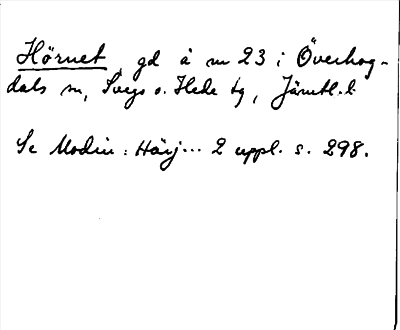 Hörnet, gd å nr 23 i Överhog-
dals sn, Svegs o. Hede tg, Jämtl. l.
Se Modin: Härj... 2 uppl. s. 298.